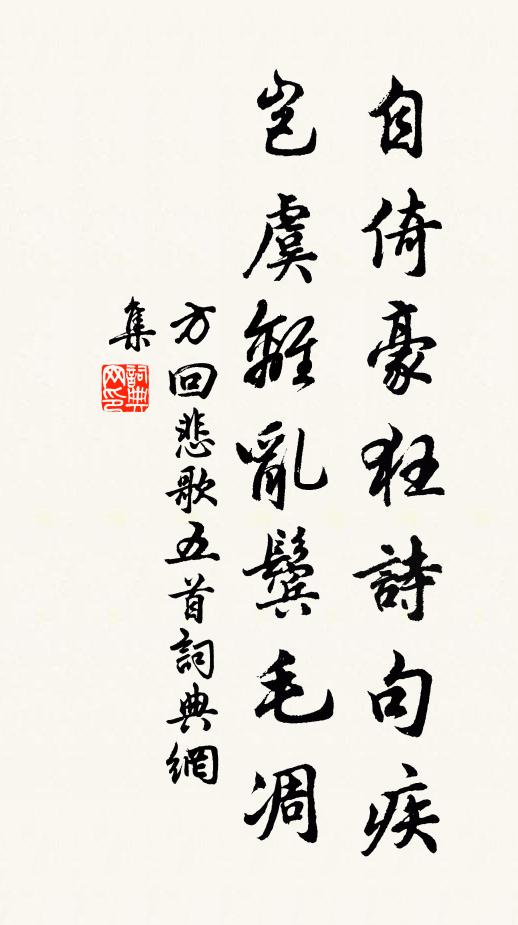 自倚豪狂詩句疾
豈虞離亂鬢毛凋
方回悲歌五首詞典網
集
詞典
网印